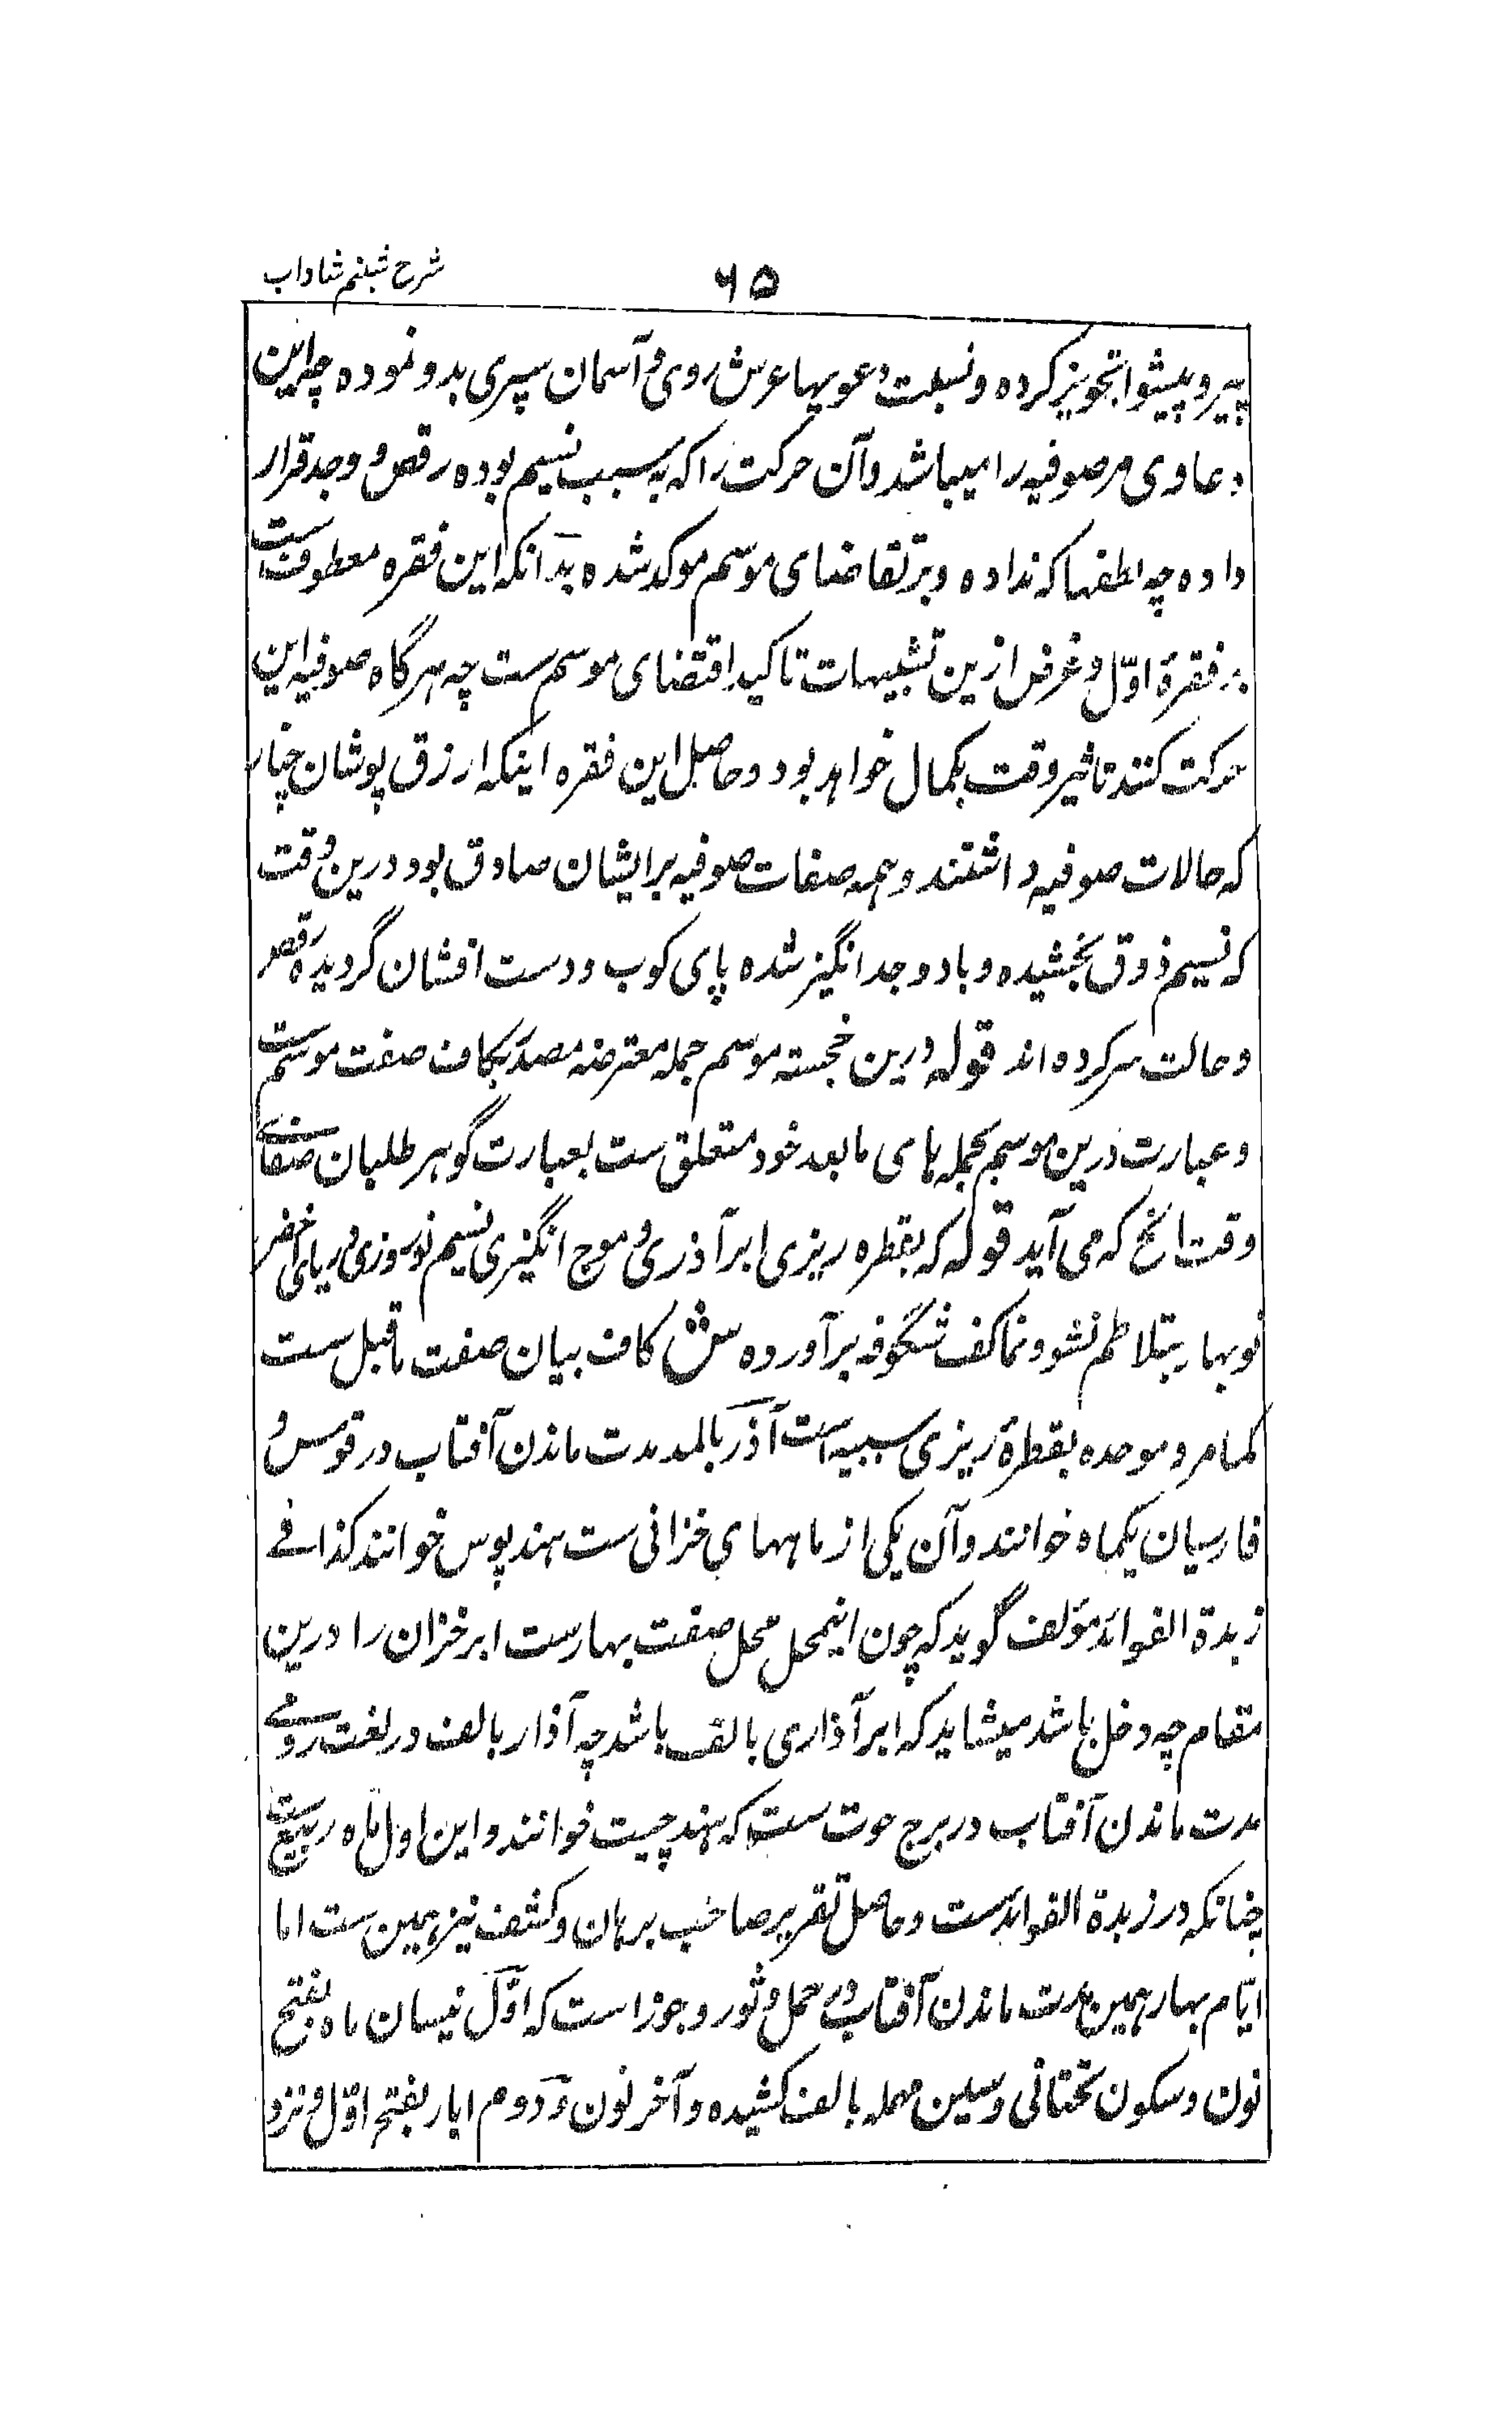 شرح شبنم شاداب
۶۵
پیر و پیشوا تجویز کرده و نسبت دعویها عرش روی و آسمان سپری بدو نموده چه این
دعاوی مر صوفیه را میباشد و آن حرکت را که به سبب نسیم بوده رقص و وجد قرار
داده چه لطفها که نداده و بر تقاضای موسم موکد شده بدانکه این فقره معطوفست
بر فقرهٔ اوّل و غرض ازین تشبیهات تاکید اقتضای موسم ست چه هرگاه صوفیه این
حرکت کنند تاثیر وقت بکمال خواهد بود و حاصل این فقره اینکه ارزق پوشان خیار
که حالات صوفیه داشتند و همه صفات صوفیه بر ایشان صادق بود درین وقت
که نسیم ذوق بخشیده و باد وجد انگیز شده پای کوب و دست افشان گردیده رقص
و حالت سر کرده اند قوله درین خجسته موسم جمله معترضه مصدر بکاف صفت موسم ست
و عبارت درین موسم بجمله های مابعد خود متعلق ست بعبارت گوهر طلبان صفای
وقت الخ که می آید قوله که بقطره ریزی ابر آذری و موج انگیزی نسیم نوروزی دریای اخضر
نوبهار بتلاطم نشو و نما کف شگوفه برآورده ش کاف بیان صفت ماقبل ست
کمامر و موحده بقطرهٔ ریزی سببیه است آذر بالمد مدت ماندن آفتاب در قوس و
فارسیان یکماه خوانند و آن یکی از ماههای خزانی ست هند پوس خوانند کذا فی
زبدة الفوائد مؤلف گوید که چون اینمحل محل صفت بهارست ابر خزان را درین
مقام چه دخل باشد میشاید که ابر آذاری بالف باشد چه آذار بالف در لغت رومی
مدت ماندن آفتاب در برج حوت ست که هند چیت خوانند و این اول ماه ربیع ست
چنانکه در زبدة الفوائدست و حاصل تقریر صاحب برهان و کشف نیز همین ست اما
ایّام بهار همین مدت ماندن آفتاب در حمل و ثور و جوزا ست که اوّل نیسان ماه بفتح
نون و سکون تحتانی و سین مهمله بالف کشیده و آخر نون و دوم ایار بفتح اوّل و نزد